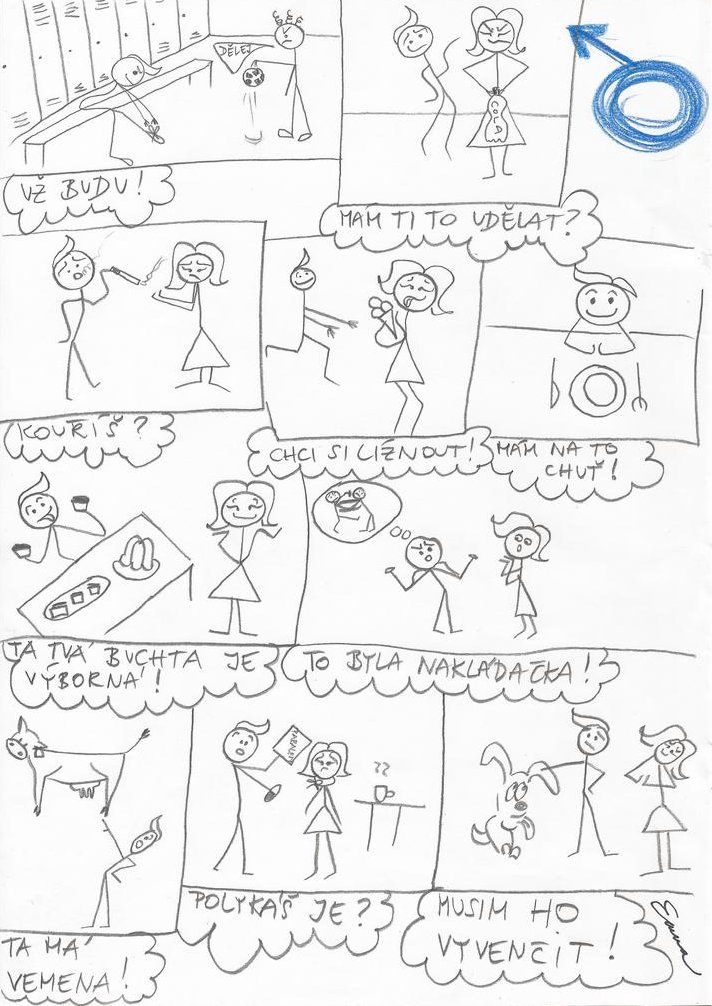 DĚLEJ
UŽ BUDU!
MÁM TI TO UDĚLAT?
KOUŘÍŠ?
CHCI SI LÍZNOUT!
MÁM NA TO
CHUŤ!
TA TVÁ BUCHTA JE
VÝBORNÁ!
TO BYLA NAKLÁDAČKA!
TA MÁ
VEMENA!
PARALEN
POLYKÁŠ JE?
MUSIM HO
VYVENČIT!
Emma